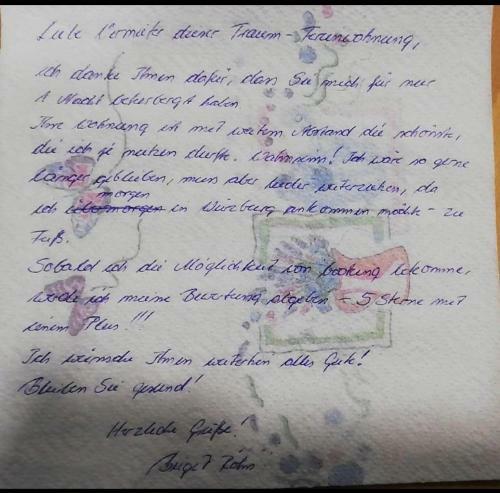 Liebe Vermieter dieser Traum-Ferienwohnung,
ich danke Ihnen dafür, dass Sie mich für nur
1 Nacht beherbergt haben
Ihre Wohnung ist mit weitem Abstand die schönste,
die ich je nutzen durfte. Wahnsinn! Ich wäre so gerne
länger geblieben, muss aber leider weiterziehen, da
ich übermorgen morgen in Würzburg ankommen möchte - zu
Fuß.
Sobald ich die Möglichkeit von booking bekomme,
werde ich meine Bewertung abgeben - 5 Sterne mit
einem Plus!!!
Ich wünsche Ihnen weiterhin alles Gute!
Bleiben Sie gesund!
Herzliche Grüße!